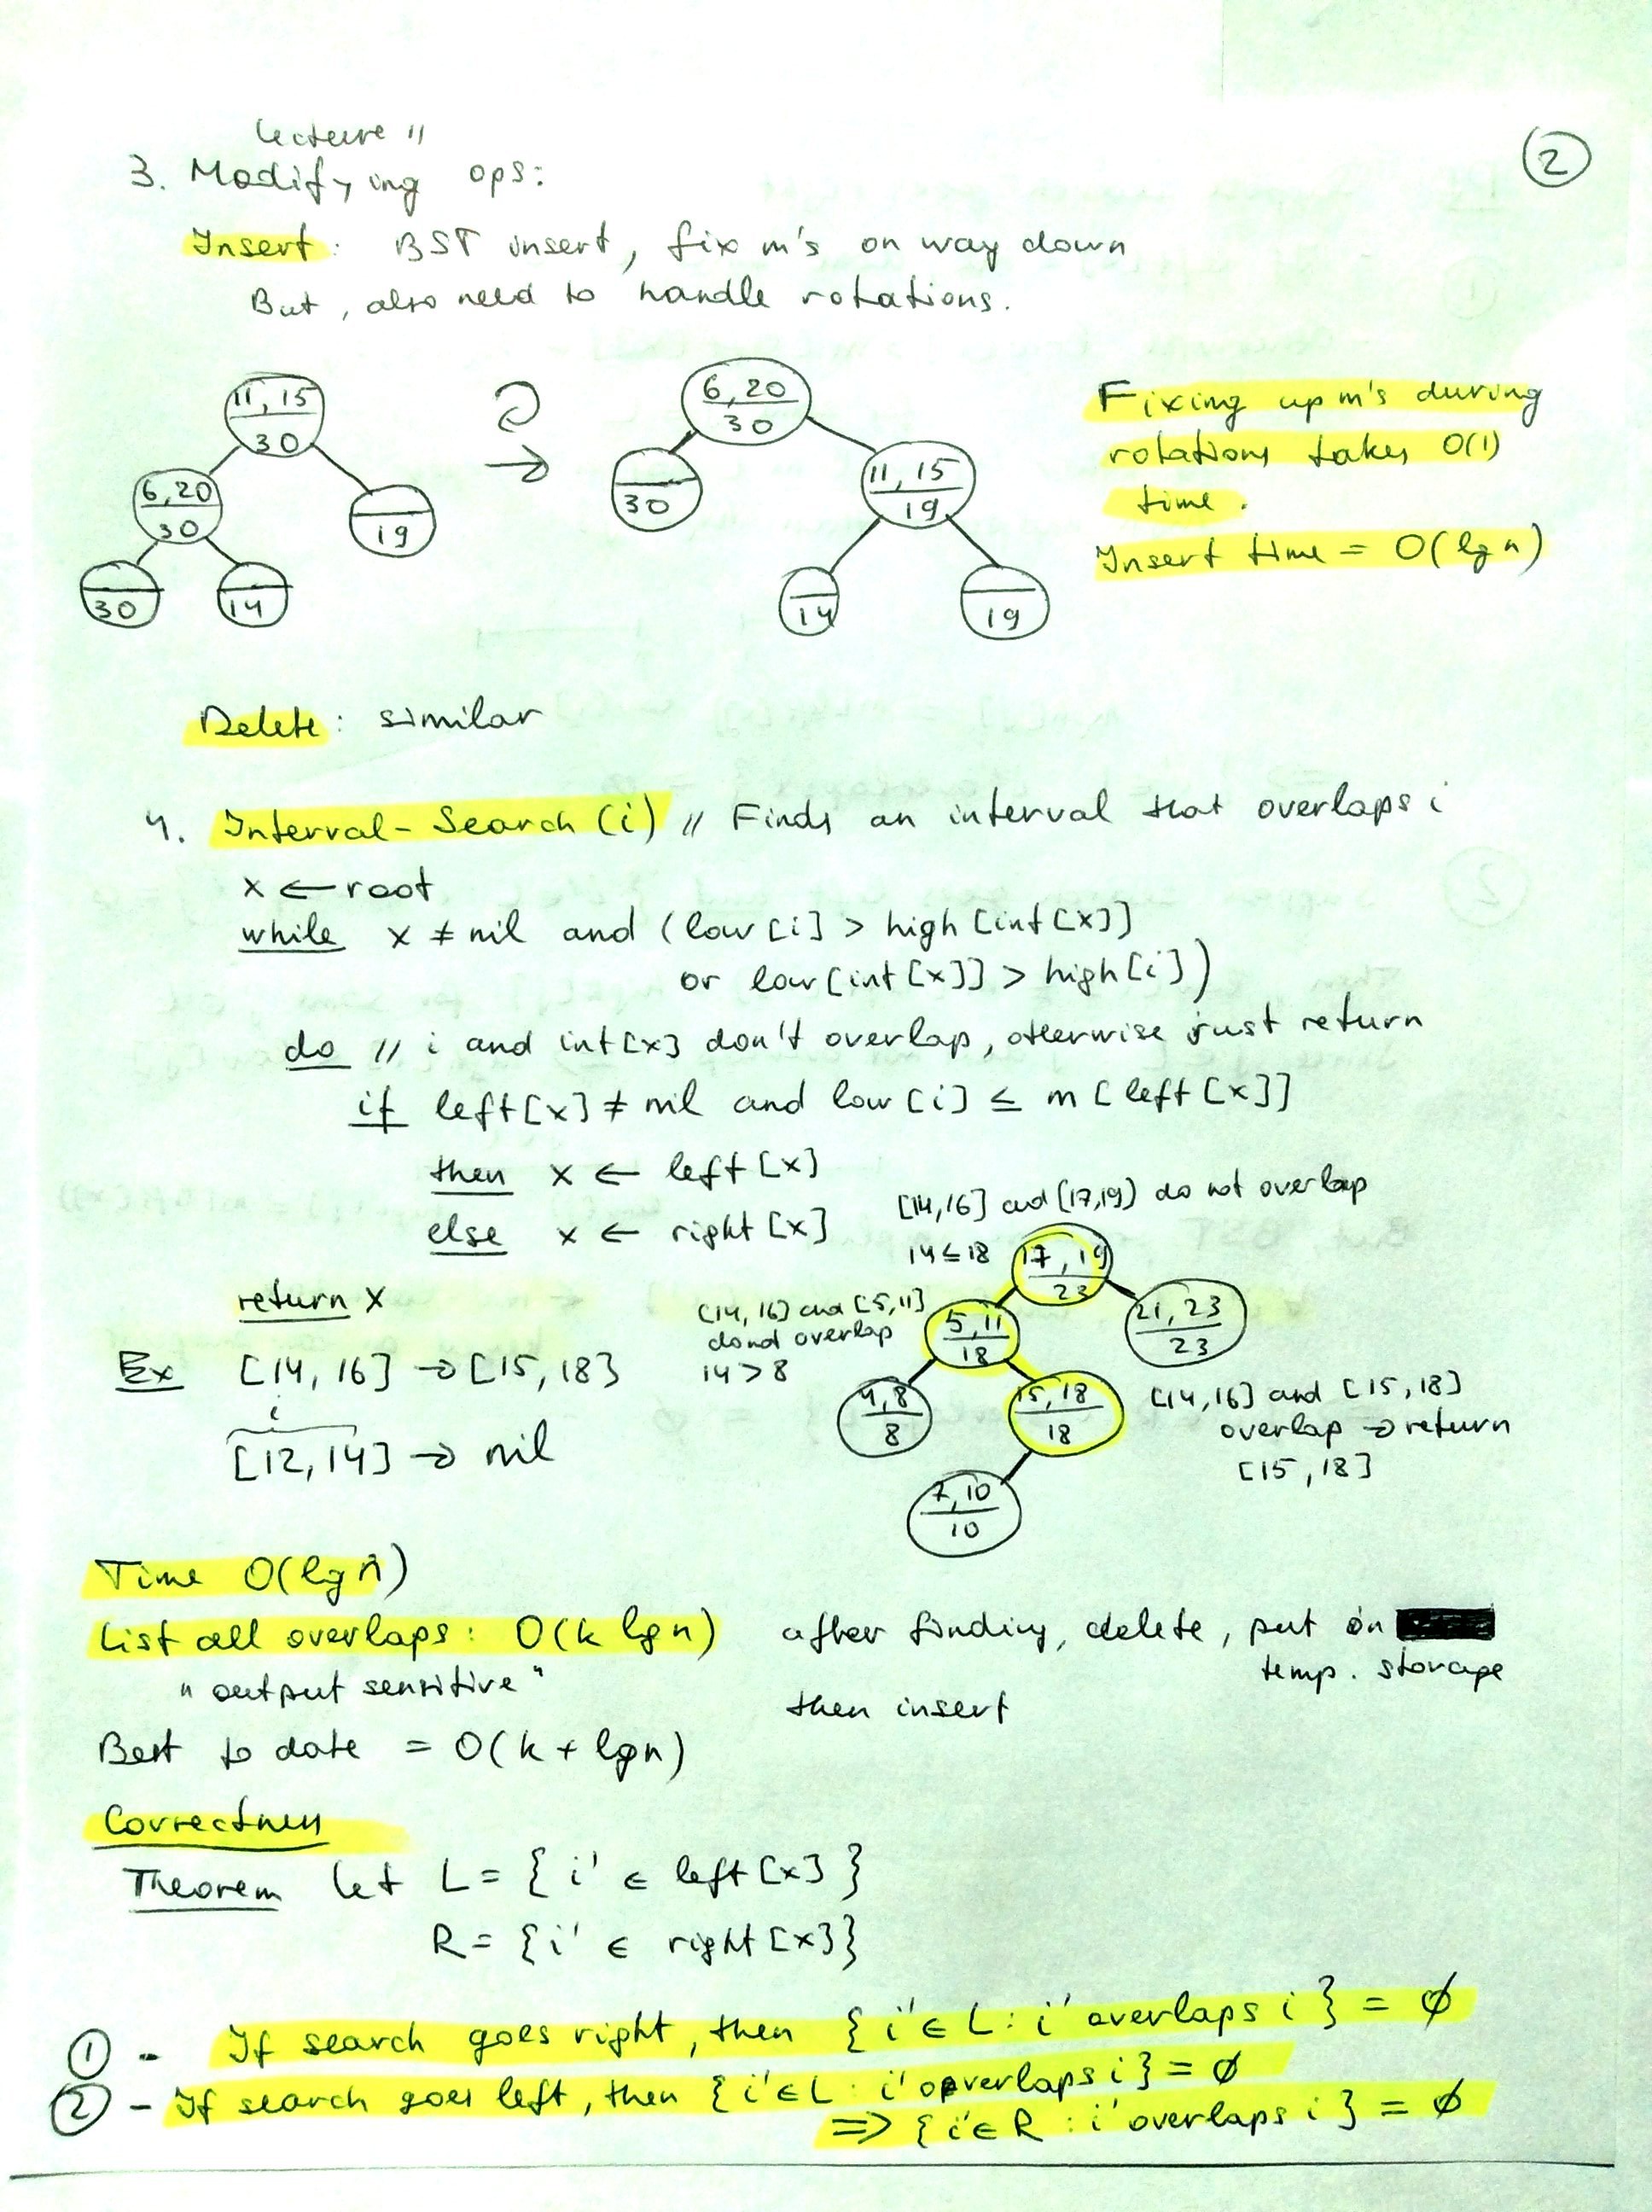 Lecture 11
2
3. Modifying ops:
Insert: BST insert, fix m's on way down
But, also need to handle rotations.
11, 15
30
6,20
30
19
30
14
→
6,20
30
30
11, 15
19
14
19
Fixing up m's during
rotations takes O(1)
time.
Insert time = O(lg n)
Delete: similar
4. Interval-Search (i) // Finds an interval that overlaps i
x ← root
while x ≠ nil and (low[i] > high[int[x]]
or low[int[x]] > high[i])
do // i and int[x] don't overlap, otherwise just return
if left[x] ≠ nil and low[i] ≤ m[left[x]]
then x ← left[x]
else x ← right[x]
return x
[14,16] and [17,19] do not overlap
14 ≤ 18
17, 19
23
[14,16] and [5,11]
do not overlap
14 > 8
5,11
18
21, 23
23
4,8
8
15,18
18
[14,16] and [15,18]
overlap → return
[15,18]
7,10
10
Ex [14,16] → [15,18]
i
[12,14] → nil
Time O(lg n)
List all overlaps: O(k lg n) after finding, delete, put in
temp. storage
"output sensitive"
then insert
Best to date = O(k + lg n)
Correctness
Theorem Let L = { i' ∈ left[x] }
R = { i' ∈ right[x] }
① - If search goes right, then { i' ∈ L : i' overlaps i } = ∅
② - If search goes left, then { i' ∈ L : i' overlaps i } = ∅
⇒ { i' ∈ R : i' overlaps i } = ∅